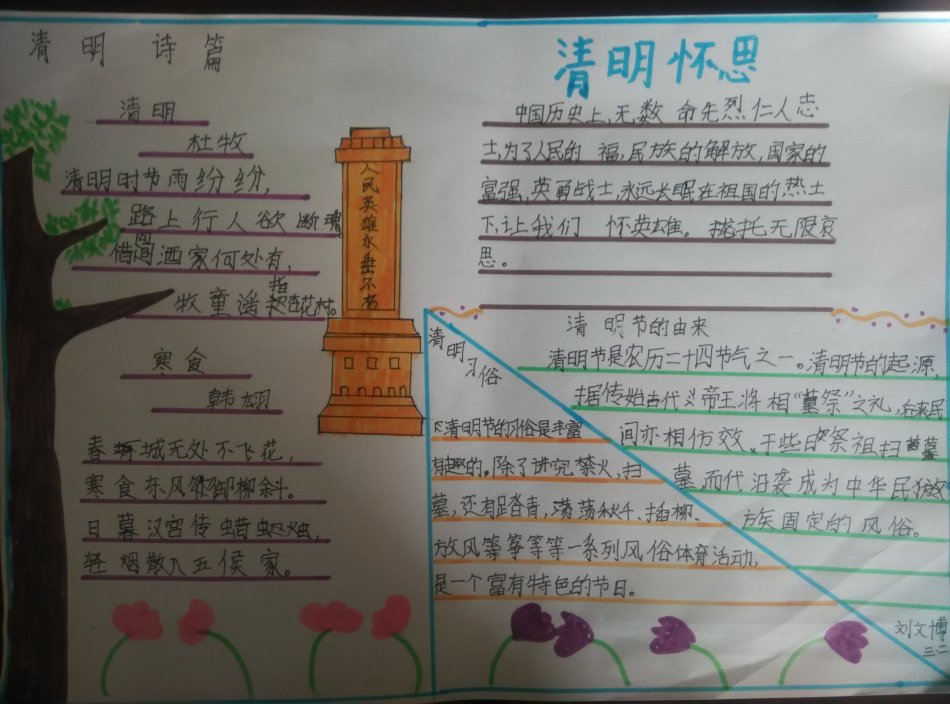 清明 诗篇
清明
杜牧
清明时节雨纷纷,
路上行人欲断魂。
借问酒家何处有,
牧童遥指杏花村。
寒食
韩翃
春城无处不飞花,
寒食东风御柳斜。
日暮汉宫传蜡烛,
轻烟散入五侯家。
人民英雄永垂不朽
清明怀思
中国历史上,无数 命先烈仁人志
士,为了人民的 福,民族的解放,国家的
富强,英勇战士,永远长眠在祖国的热土
下,让我们 怀英雄。 托无限哀
思。
清明节的由来
清明节是农历二十四节气之一。清明节的起源,
据传始古代 帝王将相“墓祭”之礼,后来民
间亦相仿效, 于些日 祭祖扫墓
墓,而代沿袭成为中华民
族固定的风俗。
清明习俗
清明节的习俗是丰富
有趣的。除了讲究禁火,扫
墓,还有踏青,荡荡秋千、插柳、
放风筝等等一系列风俗体育活动,
是一个富有特色的节日。
刘文博
三.二